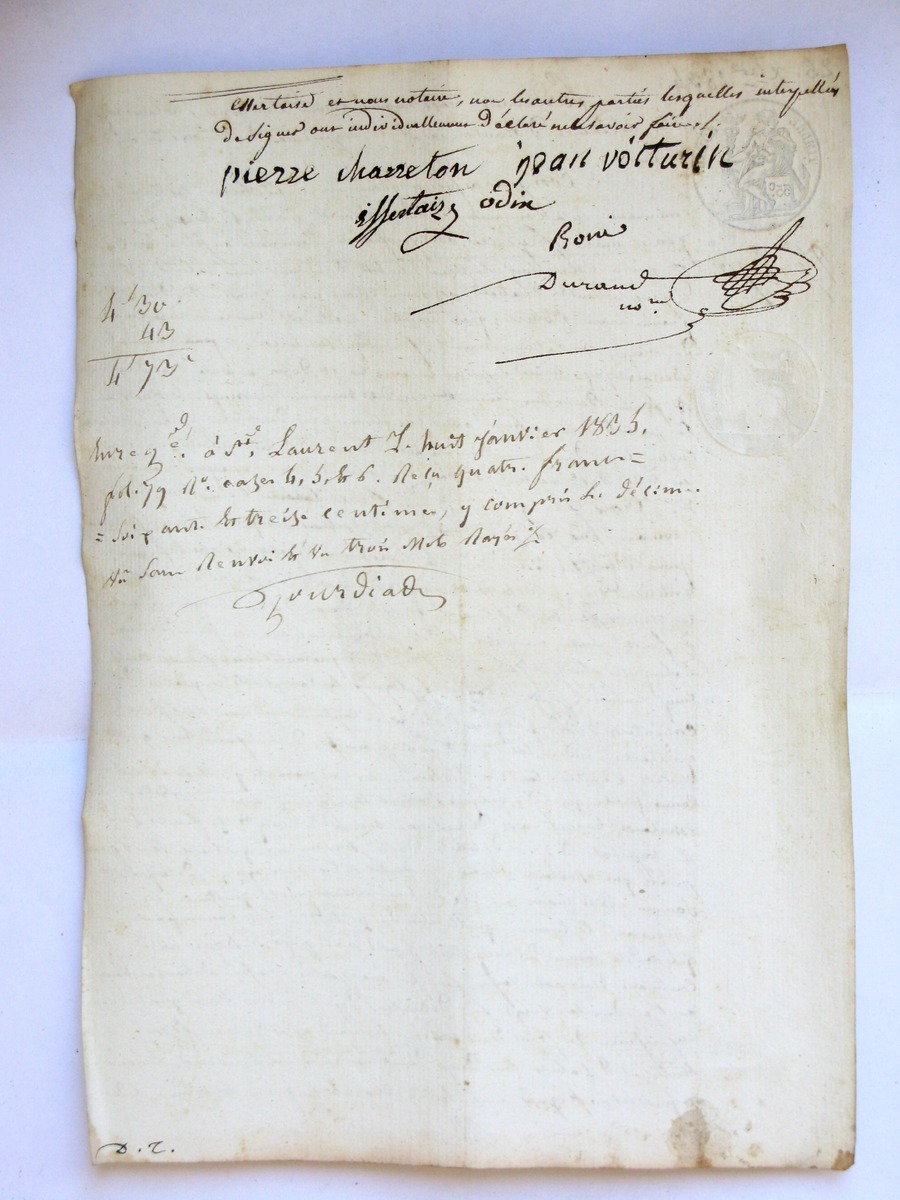 essertaise et nous notaire, non les autres parties lesquelles interpellées
de signer ont individuellement déclaré ne savoir faire ./.
pierre charreton jean voiturin
essertaize odin
Roux
Durand
no.re
4f 30
43
4f 73c
Enregé. à St. Laurent le huit janvier 1835,
fol. 79 Ro. cases 4, 5 & 6. Reçu quatre francs =
= Soixante & treize centimes, y compris le décime.
Vu Sans Renvoi & Vu trois Mots Rayés ./.
Gourdiat
D. T.